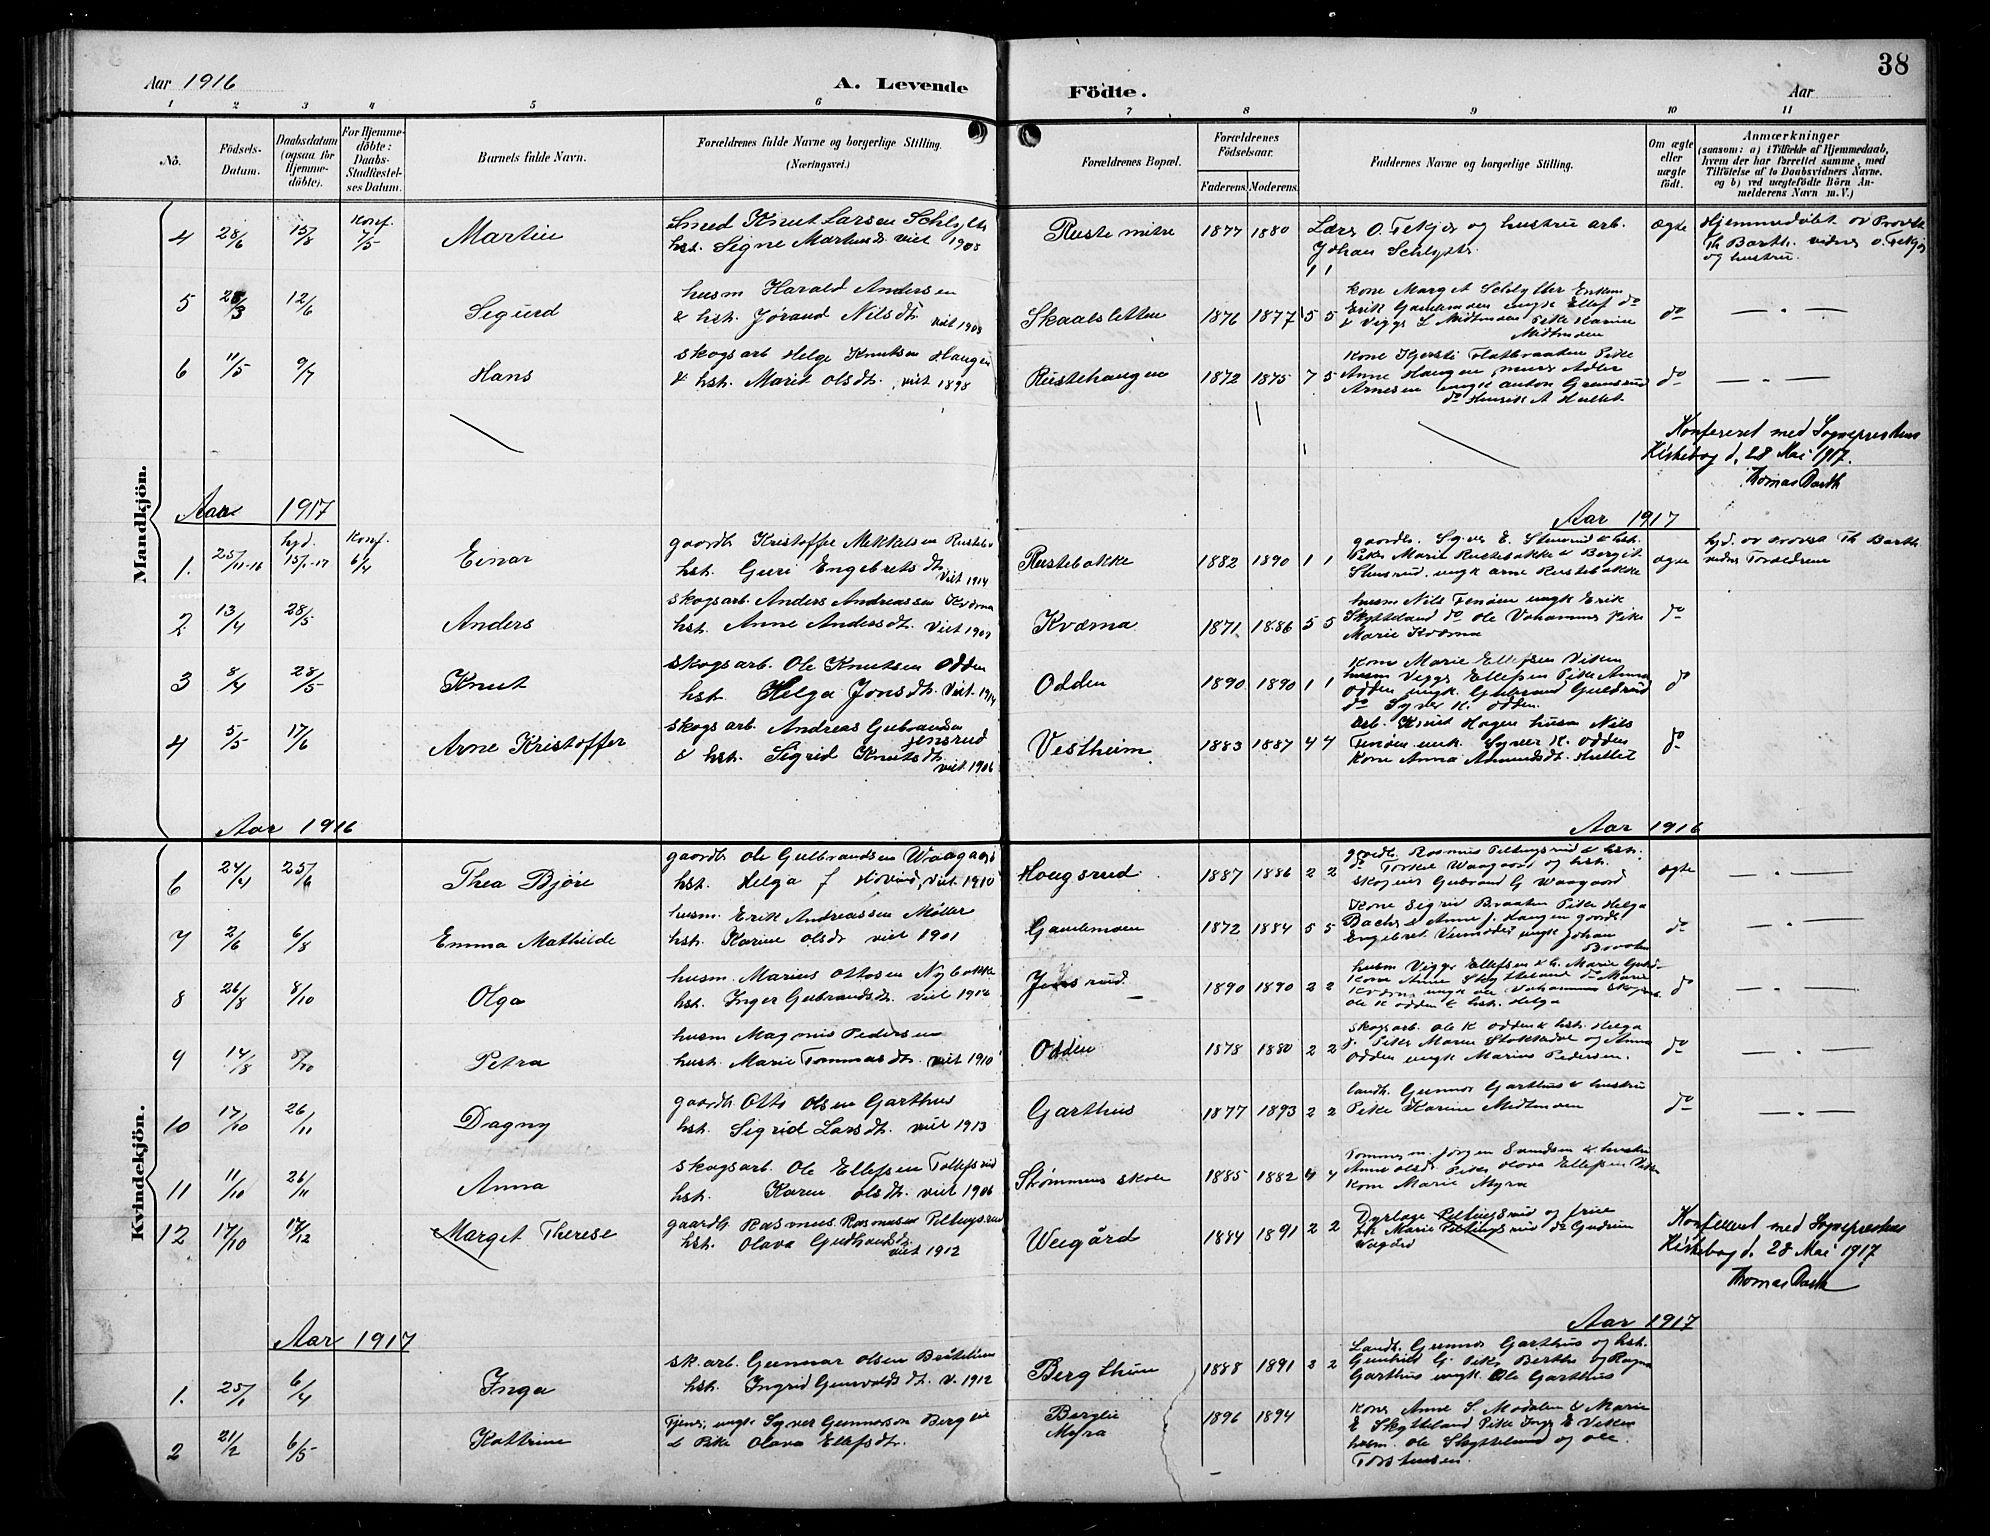 38
Aar 1916
A. Levende
Födte.
Aar
1 2 3 4 5 6 7 8 9 10 11
No.
Födsels-Datum.
Daabsdatum (ogsaa for Hjemme-döbte).
For Hjemme-döbte: Daabs-Stadfæstel-ses Datum.
Barnets fulde Navn.
Forældrenes fulde Navne og borgerlige Stilling. (Næringsvei.)
Forældrenes Bopæl.
Forældrenes Födselsaar.
Faderens. Moderens.
Faddernes Navne og borgerlige Stilling.
Om ægte eller uægte födt.
Anmærkninger
(saasom: a) i Tilfælde af Hjemmedaab, hvem der har forrettet samme, med Tilföielse af to Daabsvidners Navne, og b) ved uægtefödte Börn Anmelderens Navn m.V.)
Mandkjön.
4 28/6 15/8 Konf. 7/5 Martin
Smed Knut Larsen Schlytter
hst. Signe Martinsdt. viet 1908
Ruste mitre 1877 1880
Lars O. Tekjer og hustru arb.
Johan Schlytter
1 1
ægte
Hjemmedöbt av Provst
Th Barth. vidner O. Tekjer
og hustru.
5 12/6 Sigurd
husm Harald Andersen
& hst. Jörand Nilsdt. viet 1908
Skaalsletten 1876 1877 5 5
kone Marget Schlytter Enkem
Erik Gamlemoen ungk Ellef do
& Viggo L Midtmoen Pike Karine
Midtmoen
do
6 11/5 9/7 Hans
skogsarb Helge Knutsen Haugen
& hst. Marit Olsdt. viet 1898
Rustehaugen 1872 1875 7 5
kone Kjersti Flatbraaten Pike
Anne Haugen, murer Adler
Arnesen ungk Anton Gransrud
do Henrik A Hullet
do
Konfereret med Sogneprestens
Kirkebog d. 28 Mai 1917.
Thomas Barth
Aar 1917
Aar 1917
1. 25/11-16 hjd. 15/1-17 Konf. 6/4 Einar
gaardb Kristoffer Mekkelsen Rustebo
hst. Guri Engebretsdt. Viet 1914
Rustebakke 1882 1890 1 1
gaardbr. Syver E. Stensrud & hst.
Pike Marie Rustebakke & Bergit
Stensrud, ungk Arne Rustebakke
ægte
hjd. av provst Th Barth
vidner Forældrene
2 13/4 28/5 Anders
skogsarb. Anders Andreassen Kværna
hst. Anne Andersdt. Viet 1907
Kværna 1871 1886 5 5
husm Nils Fenöen ungk Erik
Skytteland do Ole Vahammer Pike
Marie Kværna
do
3 8/4 28/5 Knut
skogsarb. Ole Knutsen Odden
hst. Helga Jonsdt. Viet 1914
Odden 1890 1890 1 1
kone Marie Ellefsen Viken
husm Viggo Ellefsen Pike Anna
Odden ungk. Gulbrand Guldsrud
do Syver K. Odden.
do
4 5/5 17/6 Arne Kristoffer
skogsarb. Andreas Gubrandsen
Jensrud
& hst. Sigrid Knutsdt. viet 1906
Vestheim 1883 1887 4 4
arb. Knut Hagen husm Nils
Fenöen unk. Syver K. Odden
kone Anna Amundsdt. Hullet
do
Aar 1916
Aar 1916
Kvindekjön.
6 24/4 25/6 Thea Björe
gaardb Ole Gulbrandsen Waagaard
hst. Helga J Hovind, viet 1910
Hougsrud 1887 1886 2 2
gaardb. Rasmus Peltingsrud & hst.
do Torkel Waagaard og hst.
skogeier Gubrand G Waagaard
ægte
7 2/6 6/8 Emma Mathilde
husm. Erik Andreassen Möller
hst. Karine Olsdt viet 1901
Gamlemoen 1872 1884 5 5
Kone Sigrid Braaten Pike Helga
Anne J. Haugen gaardb
do
8 26/8 8/10 Olga
husm. Marius Ottosen Nybakke
hst. Inger Gubrandsdt. viet 1914
Jensrud 1890 1890 2 2
husm Viggo Ellefsen
Kone Anne Skytteland do Marie
Kværna ungk Ole Vahammer
Ole K Odden & hst. Helga
do
9 14/8 Petra
husm Magnus Pedersen
hust. Marie Tommasdt. viet 1910
Odden 1878 1880 2 2
skogsarb. Ole K Odden & hst. Helga
J. Pike Maren Stokkedal og Anna
Odden ungk Marius Pedersen.
do
10 17/10 26/11 Dagny
gaardb Otto Olsen Garthus
hst. Sigrid Larsdt. viet 1913
Garthus 1877 1893 2 2
landh. Gunnor Garthus & hustru
Pike Karine Midtmoen
do
11 11/10 26/11 Anna
skogsarb. Ole Ellefsen Tollefsrud
hst. Karen Olsdt. viet 1906
Strömmens skole 1885 1882 4 4
Tommerm. Jörgen Svendsen & hustru
Anne Olsdt Pike Olava Ellefsen
kone Marie Myra
12 17/10 17/12 Marget Therese
gaardb Rasmus Rasmussen Peltingsrud
hst. Olava Gudbrandsdt. viet 1912
Weegård 1884 1891 2 2
Dyrlæge Peltingsrud og frue
frk Marie Peltingsrud do Gudrun
Wegård
Konfereret med Sogneprestens
Kirkebog d. 28 Mai 1917
Thomas Barth
Aar 1917
Aar 1917
1. 25/1 6/4 Inga
sk.arb. Gunnar Olsen
hst. Ingrid Gunvaldsdt. v. 1912
Bergthun 1888 1891 2 2
Landh. Gunnor Garthus og hst.
Gunhild G. Pike Berthe og Ragna
Garthus ungk. Ole Garthus
2 21/2 6/5 Kattrine
Tjener, ungk Syver Gunnarson Berglie
& Pike Olava Ellefsdt.
Berglie
Myra
1896 1894
Kone Anne S. Modalen & Marie
E Skytteland Pike Inga E Viken
husm. Ole Skytteland og Ole
Torstensen.